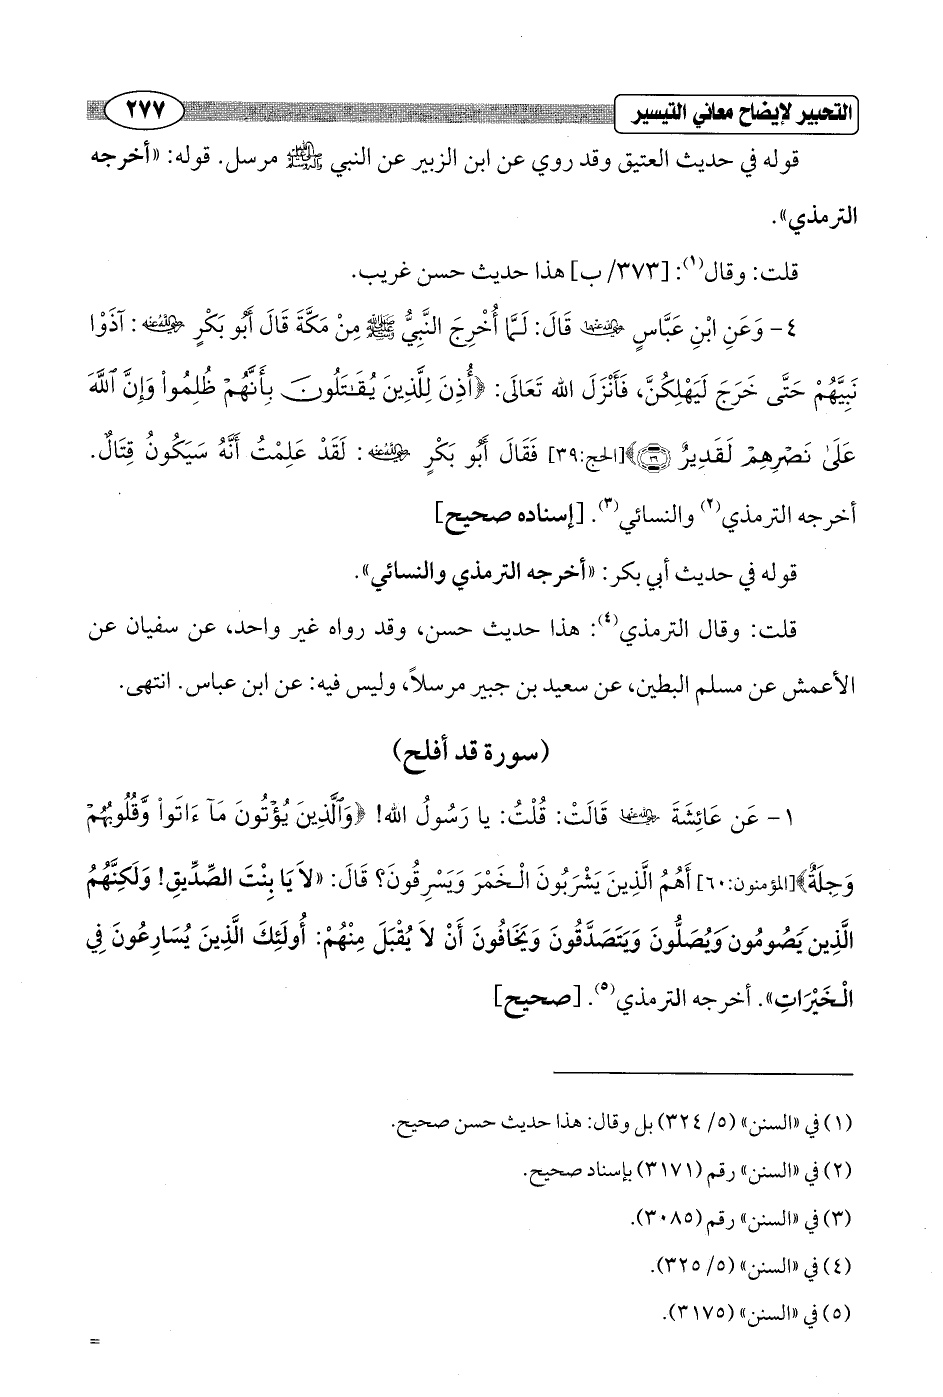 التحبير لإيضاح معاني التيسير ٢٧٧
قوله في حديث العتيق وقد روي عن ابن الزبير عن النبي ﷺ مرسل. قوله: «أخرجه
الترمذي».
قلت: وقال(١): [٣٧٣/ ب] هذا حديث حسن غريب.
٤- وَعَنِ ابْنِ عَبَّاسٍ رضي الله عنهما قَالَ: لَمَّا أُخْرِجَ النَّبِيُّ ﷺ مِنْ مَكَّةَ قَالَ أَبُو بَكْرٍ رضي الله عنه: آذَوْا
نَبِيَّهُمْ حَتَّى خَرَجَ لَيَهْلِكُنَّ، فَأَنْزَلَ الله تَعَالَى: ﴿أُذِنَ لِلَّذِينَ يُقَٰتَلُونَ بِأَنَّهُمْ ظُلِمُواْ وَإِنَّ ٱللَّهَ
عَلَىٰ نَصْرِهِمْ لَقَدِيرٌ ۝٣٩﴾[الحج:٣٩] فَقَالَ أَبُو بَكْرٍ رضي الله عنه: لَقَدْ عَلِمْتُ أَنَّهُ سَيَكُونُ قِتَالٌ.
أخرجه الترمذي(٢) والنسائي(٣). [إسناده صحيح]
قوله في حديث أبي بكر: «أخرجه الترمذي والنسائي».
قلت: وقال الترمذي(٤): هذا حديث حسن، وقد رواه غير واحد، عن سفيان عن
الأعمش عن مسلم البطين، عن سعيد بن جبير مرسلاً، وليس فيه: عن ابن عباس. انتهى.
(سورة قد أفلح)
١- عَن عَائِشَةَ رضي الله عنها قَالَتْ: قُلْتُ: يا رَسُولُ الله! ﴿وَٱلَّذِينَ يُؤْتُونَ مَآ ءَاتَواْ وَّقُلُوبُهُمْ
وَجِلَةٌ﴾[المؤمنون:٦٠] أَهُمُ الَّذِينَ يَشْرَبُونَ الْخَمْرَ وَيَسْرِقُونَ؟ قَالَ: «لاَ يَا بِنْتَ الصِّدِّيقِ! وَلَكِنَّهُمُ
الَّذِينَ يَصُومُونَ وَيُصَلُّونَ وَيَتَصَدَّقُونَ وَيَخَافُونَ أَنْ لاَ يُقْبَلَ مِنْهُمْ: أُولَئِكَ الَّذِينَ يُسَارِعُونَ فِي
الْخَيْرَاتِ». أخرجه الترمذي(٥). [صحيح]
(١) في «السنن» (٥/ ٣٢٤) بل وقال: هذا حديث حسن صحيح.
(٢) في «السنن» رقم (٣١٧١) بإسناد صحيح.
(٣) في «السنن» رقم (٣٠٨٥).
(٤) في «السنن» (٥/ ٣٢٥).
(٥) في «السنن» (٣١٧٥).
=